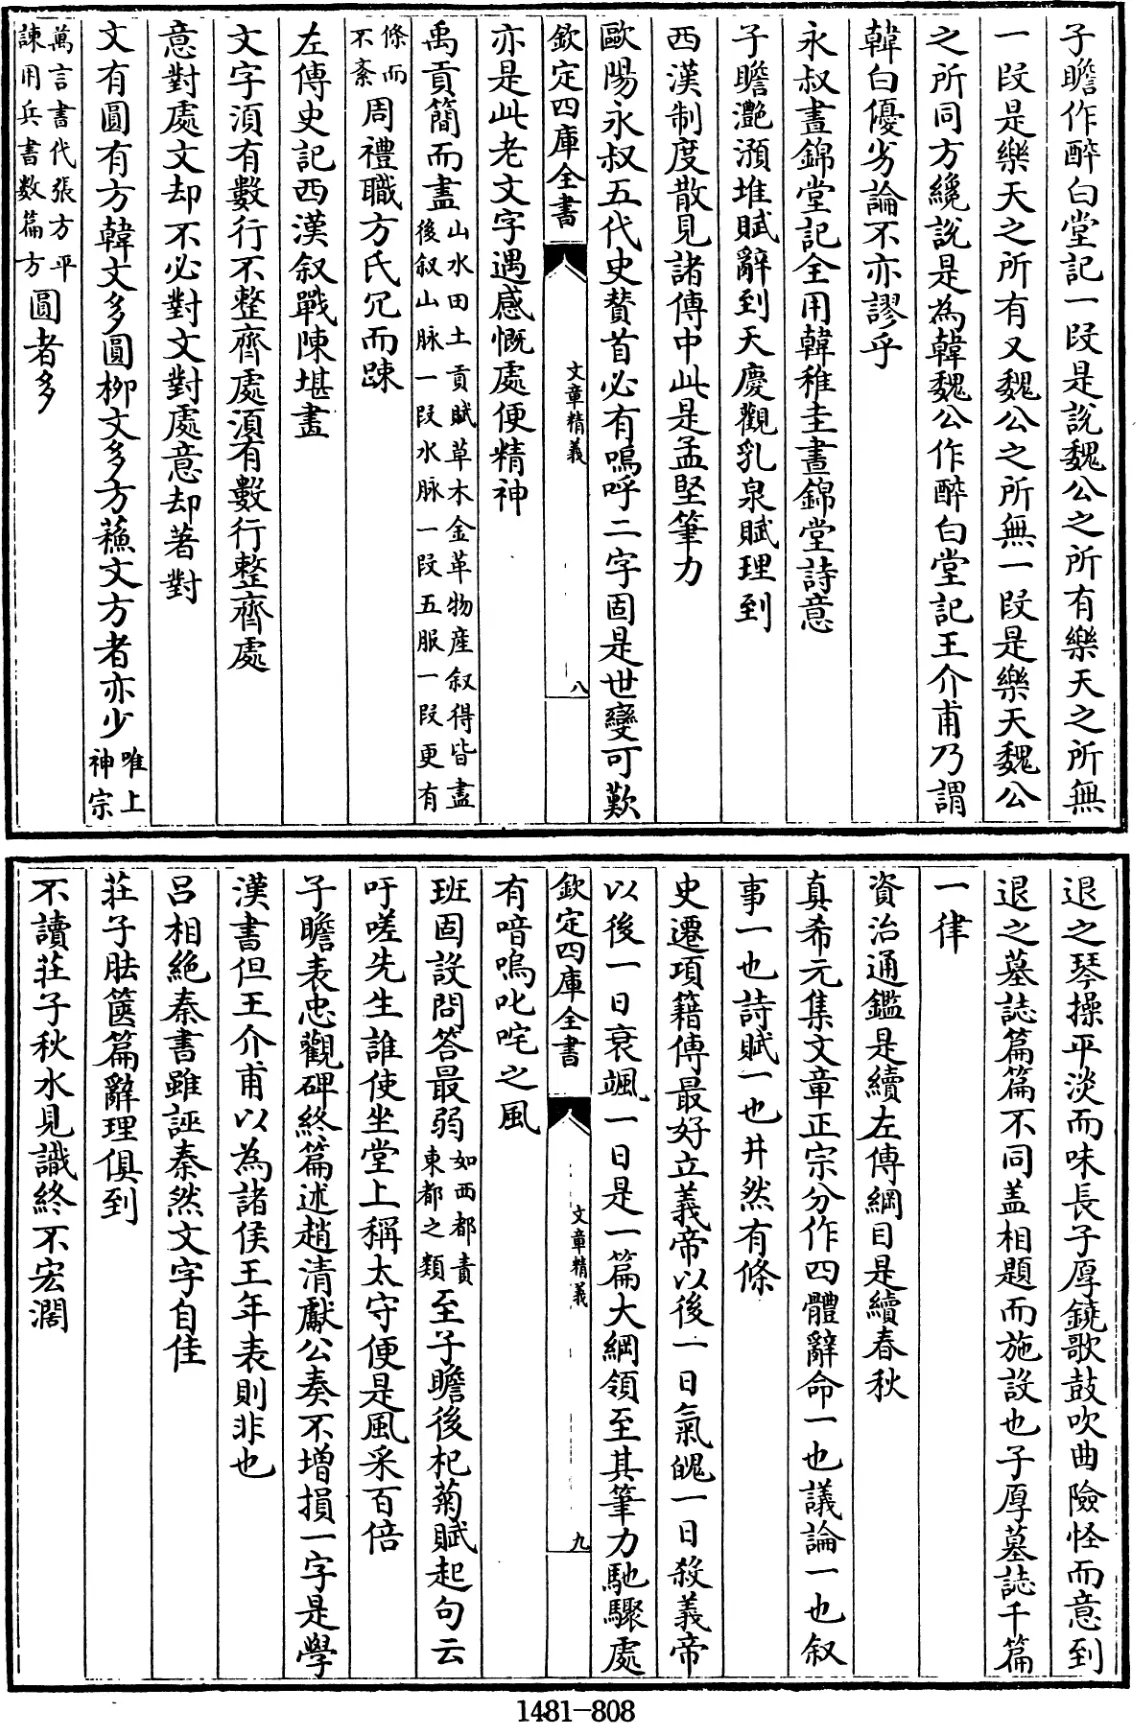 子瞻作醉白堂記一段是說魏公之所有樂天之所無
一段是樂天之所有又魏公之所無一段是樂天魏公
之所同方纔說是為韓魏公作醉白堂記王介甫乃謂
韓白優劣論不亦謬乎
永叔晝錦堂記全用韓稚圭晝錦堂詩意
子瞻灧澦堆賦辭到天慶觀乳泉賦理到
西漢制度散見諸傳中此是孟堅筆力
歐陽永叔五代史贊首必有嗚呼二字固是世變可歎
欽定四庫全書 文章精義 八
亦是此老文字遇感慨處便精神
禹貢簡而盡山水田土貢賦草木金革物産叙得皆盡後叙山脉一段水脉一段五服一段更有
條而不紊周禮職方氏冗而踈
左傳史記西漢叙戰陳堪畫
文字須有數行不整齊處須有數行整齊處
意對處文却不必對文對處意却著對
文有圓有方韓文多圓柳文多方蘇文方者亦少唯上神宗
萬言書代張方平諫用兵書數篇方圓者多
退之琴操平淡而味長子厚鐃歌鼓吹曲險怪而意到
退之墓誌篇篇不同盖相題而施設也子厚墓誌千篇
一律
資治通鑑是續左傳綱目是續春秋
真希元集文章正宗分作四體辭命一也議論一也叙
事一也詩賦一也井然有條
史遷項籍傳最好立義帝以後一日氣魄一日殺義帝
以後一日衰颯一日是一篇大綱領至其筆力馳驟處
欽定四庫全書 文章精義 九
有喑嗚叱咤之風
班固設問答最弱如西都責東都之類至子瞻後杞菊賦起句云
吁嗟先生誰使坐堂上稱太守便是風采百倍
子瞻表忠觀碑終篇述趙清獻公奏不增損一字是學
漢書但王介甫以為諸侯王年表則非也
吕相絶秦書雖誣秦然文字自佳
莊子胠篋篇辭理俱到
不讀莊子秋水見識終不宏濶
1481-808